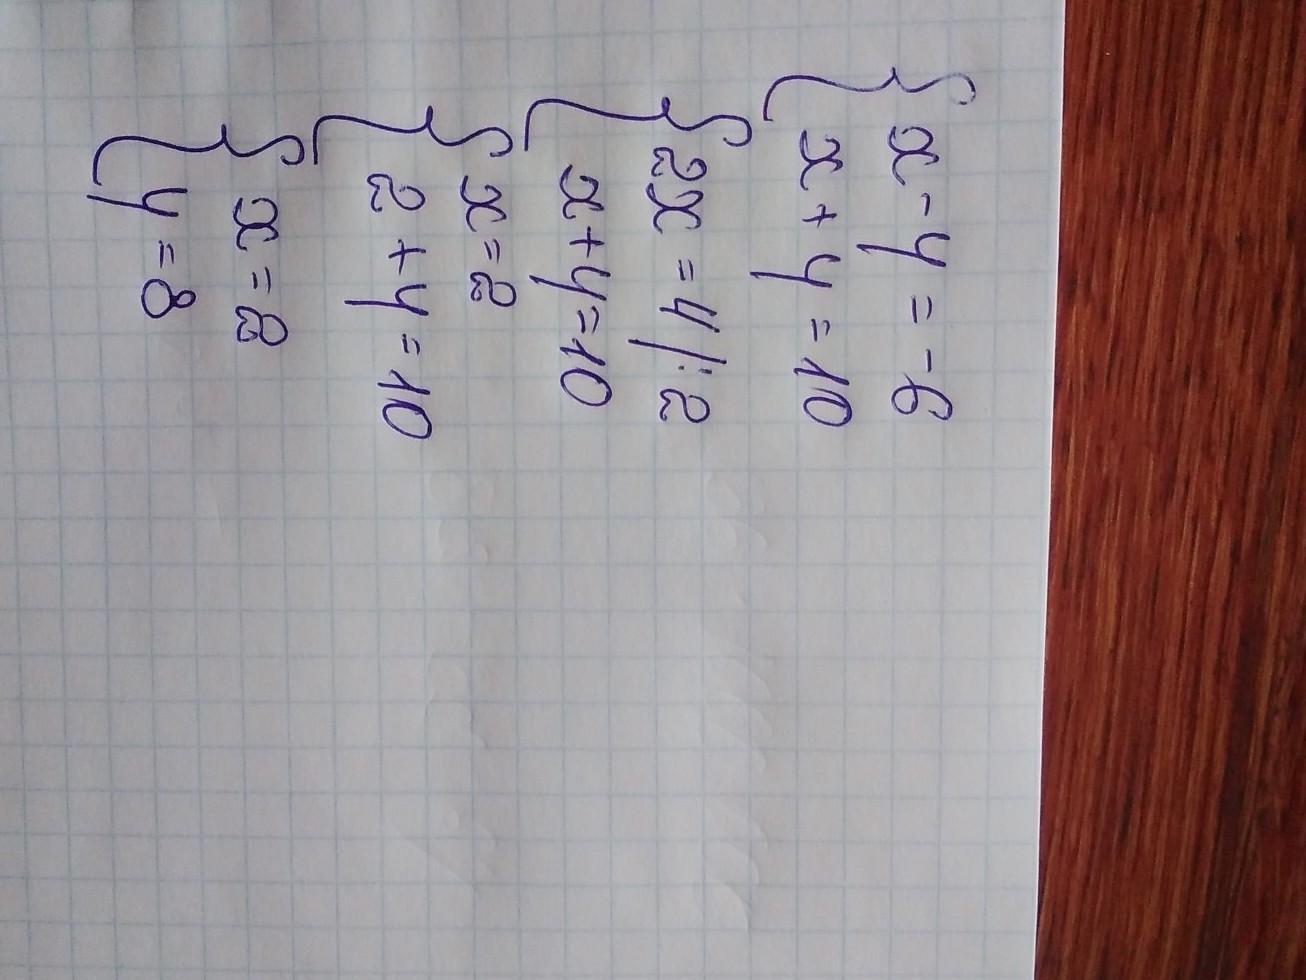 x - y = -6
x + y = 10
2x = 4 | : 2
x + y = 10
x = 2
2 + y = 10
x = 2
y = 8